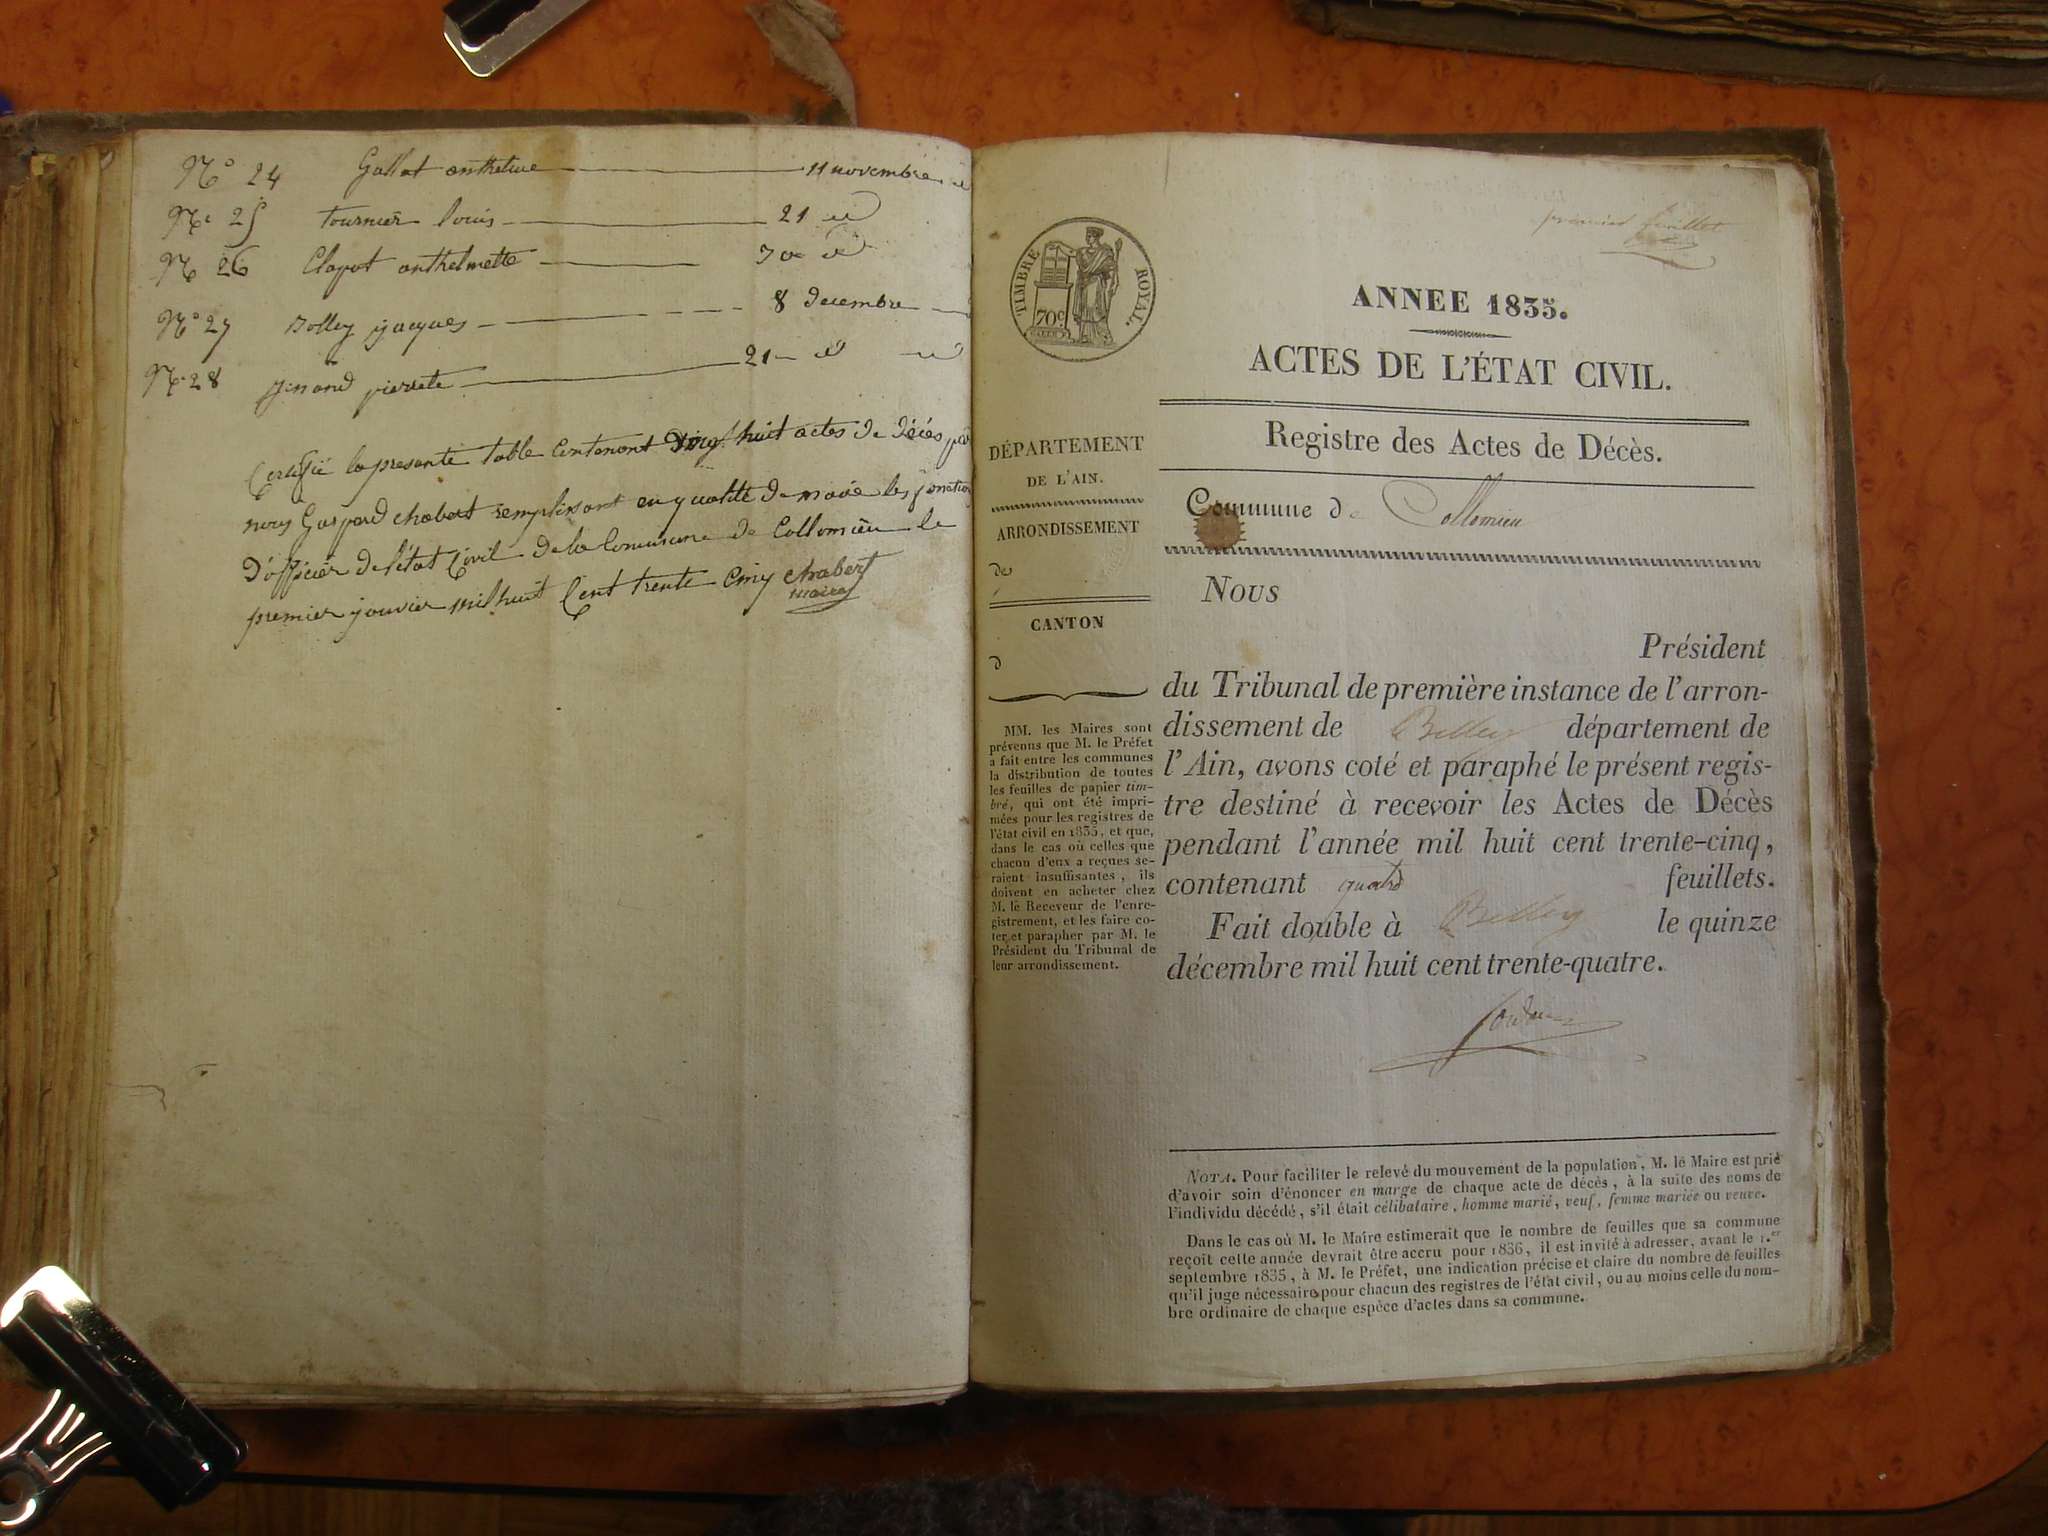 N° 24 Gallat anthelme 11 novembre
N° 25 tournier louis 21 id
N° 26 Clapot anthelmette 30 id
N° 27 Bolley jacques 8 decembre
N° 28 pierrete 21 id
Certifié la presente table Contenant vingt huit actes de décés par
nous Gaspard chabert remplissant en qualité de maire les fonction
D'officier de l'état Civil de la Commune de Collomieu le
premier janvier mil huit Cent trente Cinq chabert
maire
premier feuillet
TIMBRE ROYAL.
70c
ANNEE 1835.
ACTES DE L'ÉTAT CIVIL.
Registre des Actes de Décès.
Commune de Collomieu
DÉPARTEMENT
DE L'AIN.
ARRONDISSEMENT
de
CANTON
d
MM. les Maires sont
prévenus que M. le Préfet
a fait entre les communes
la distribution de toutes
les feuilles de papier tim-
bré, qui ont été impri-
mées pour les registres de
l'état civil en 1835, et que,
dans le cas où celles que
chacun d'eux a reçues se-
raient insuffisantes, ils
doivent en acheter chez
M. le Receveur de l'enre-
gistrement, et les faire co-
ter et parapher par M. le
Président du Tribunal de
leur arrondissement.
Nous
Président
du Tribunal de première instance de l'arron-
dissement de Belley département de
l'Ain, avons coté et paraphé le présent regis-
tre destiné à recevoir les Actes de Décès
pendant l'année mil huit cent trente-cinq,
contenant quatre feuillets.
Fait double à Belley le quinze
décembre mil huit cent trente-quatre.
NOTA. Pour faciliter le relevé du mouvement de la population, M. le Maire est prié
d'avoir soin d'énoncer en marge de chaque acte de décès, à la suite des noms de
l'individu décédé, s'il était célibataire, homme marié, veuf, femme mariée ou veuve.
Dans le cas où M. le Maire estimerait que le nombre de feuilles que sa commune
reçoit cette année devrait être accru pour 1836, il est invité à adresser, avant le 1.er
septembre 1835, à M. le Préfet, une indication précise et claire du nombre de feuilles
qu'il juge nécessaire pour chacun des registres de l'état civil, ou au moins celle du nom-
bre ordinaire de chaque espèce d'actes dans sa commune.